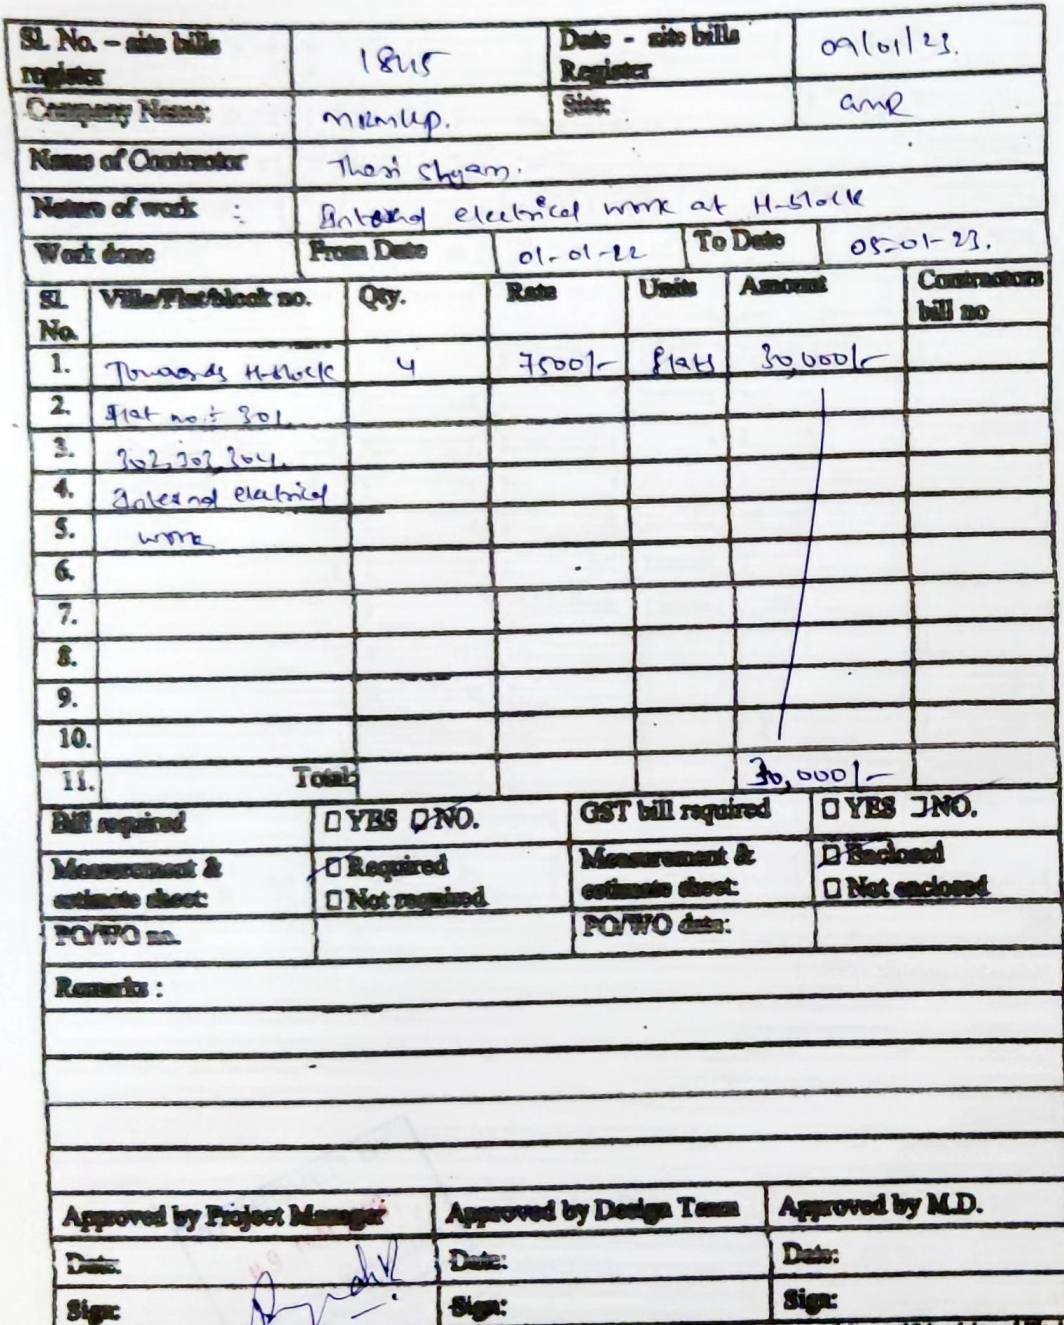 Sl. No. – site bills register 1845 Date - site bills Register 09/01/23.
Company Name: MRMLLP. Site: GMR
Name of Contractor Shyam.
Nature of work : Internal electrical work at H-block
Work done From Date 01-01-22 To Date 05-01-23.
Sl. No. Villa/Flat/block no. Qty. Rate Units Amount Contractors bill no
1. Towards H-block 4 7500/- flats 30,000/-
2. flat no:- 301,
3. 302,303,304.
4. Internal electrical
5. work
6.
7.
8.
9.
10.
11. Total: 30,000/-
Bill required ☐ YES ☐ NO. GST bill required ☐ YES ☐ NO.
Measurement & estimate sheet: ☐ Required ☐ Not required Measurement & estimate sheet: ☐ Enclosed ☐ Not enclosed
PO/WO no. PO/WO date:
Remarks :
Approved by Project Manager Approved by Design Team Approved by M.D.
Date: Date: Date:
Sign: Sign: Sign: